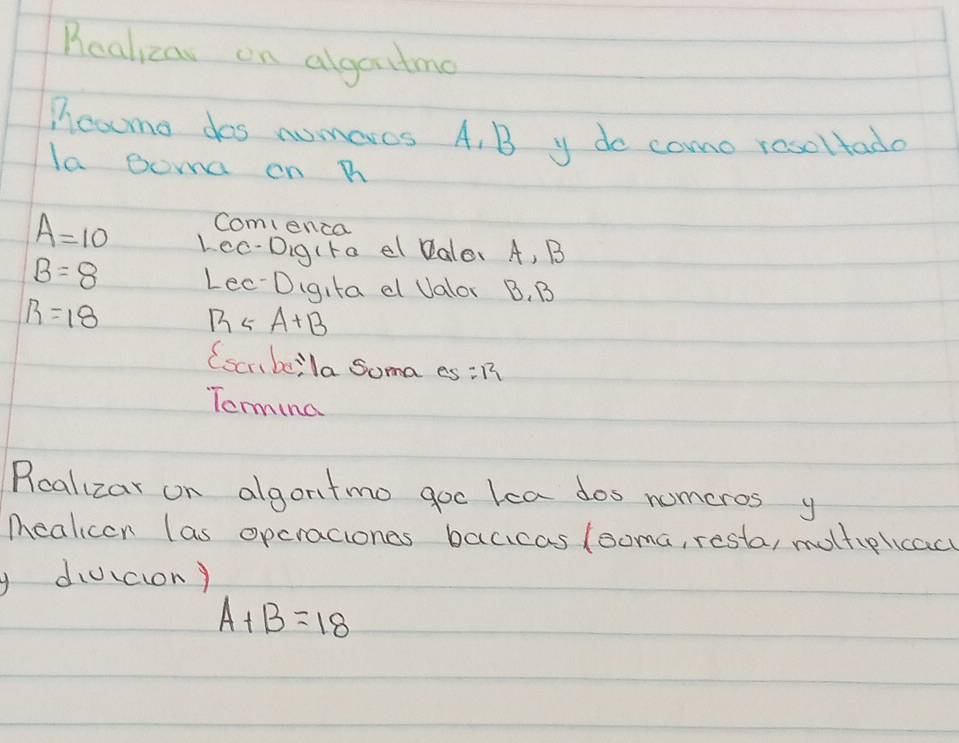 Realizar un algoritmo
Resuma dos numeros A, B y de como resoltado
la suma en R
A=10
B=8
R=18
Comienza
Lee-Digita el Valor A, B
Lee-Digita el Valor B, B
R ← A+B
Escribe: la Suma es = R
Termina
Realizar un algoritmo que lea dos numeros y
Realicen las operaciones bacicas (suma, resta, multiplicaci
y divicion)
A+B=18